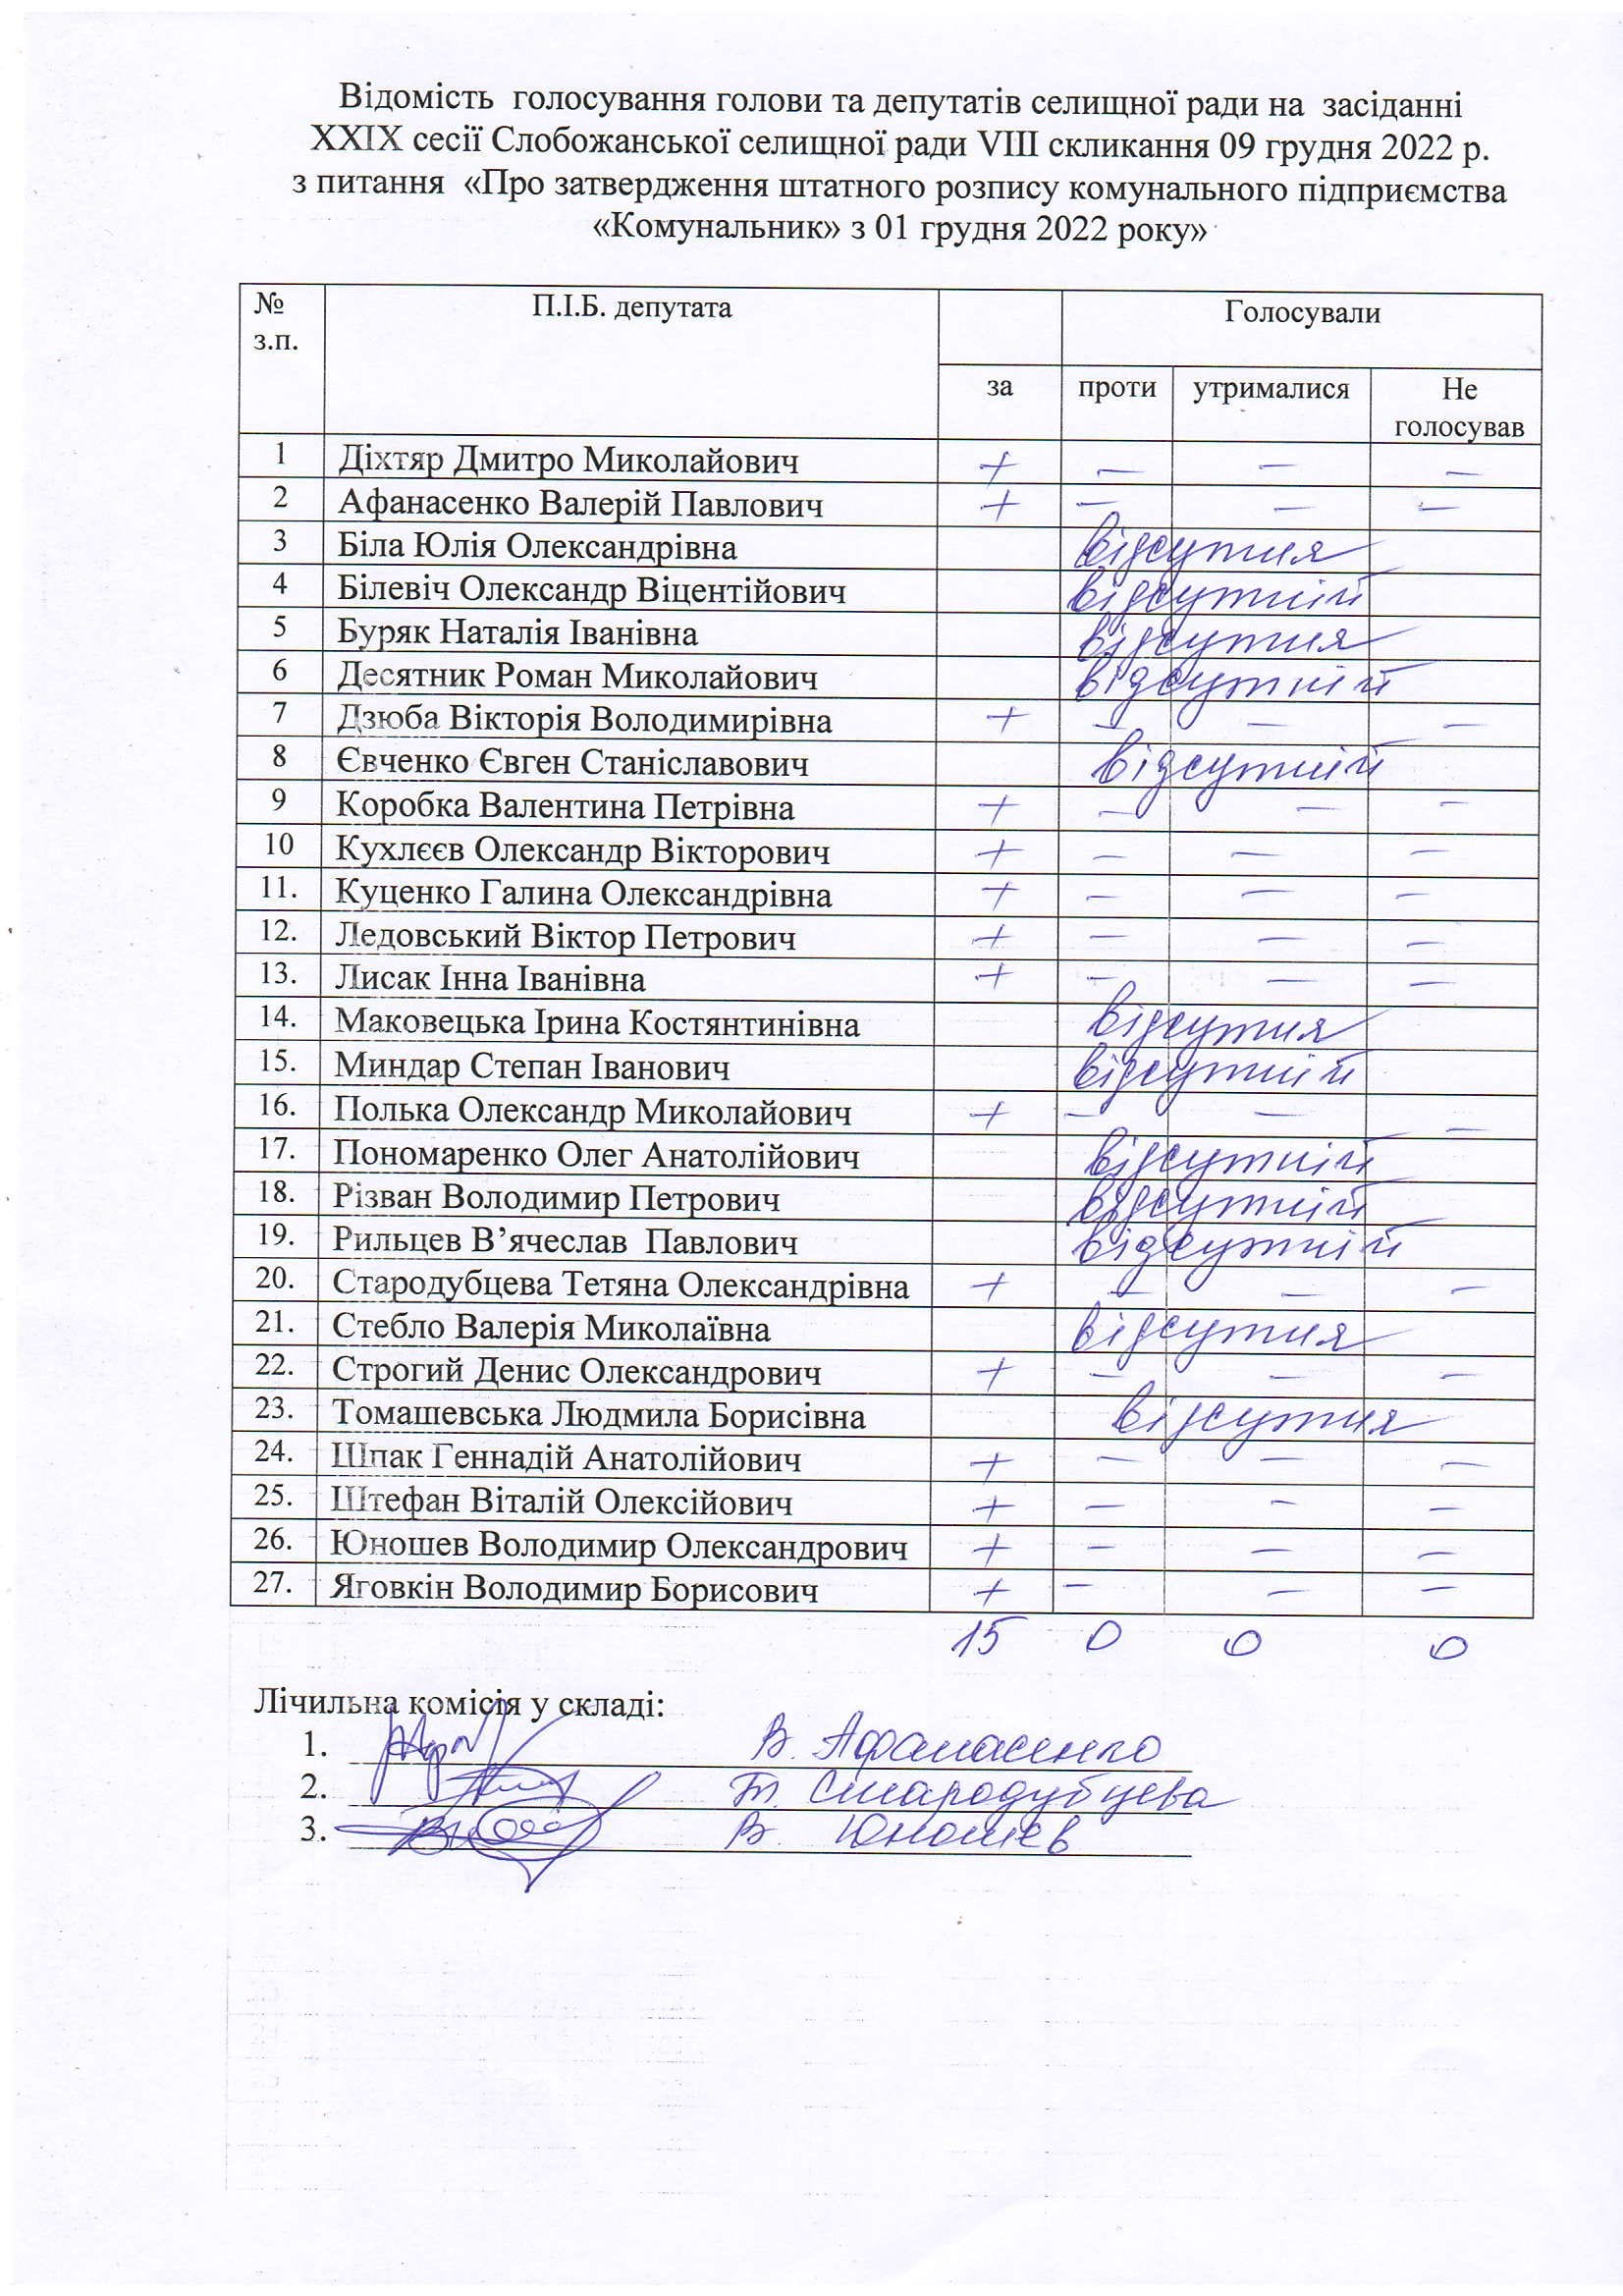 Відомість голосування голови та депутатів селищної ради на засіданні
XXIX сесії Слобожанської селищної ради VIII скликання 09 грудня 2022 р.
з питання «Про затвердження штатного розпису комунального підприємства
«Комунальник» з 01 грудня 2022 року»
№ з.п. П.І.Б. депутата Голосували
за проти утрималися Не голосував
1 Діхтяр Дмитро Миколайович + — — —
2 Афанасенко Валерій Павлович + — — —
3 Біла Юлія Олександрівна відсутня
4 Білевіч Олександр Віцентійович відсутній
5 Буряк Наталія Іванівна відсутня
6 Десятник Роман Миколайович відсутній
7 Дзюба Вікторія Володимирівна + — — —
8 Євченко Євген Станіславович відсутній
9 Коробка Валентина Петрівна + — — —
10 Кухлєєв Олександр Вікторович + — — —
11. Куценко Галина Олександрівна + — — —
12. Ледовський Віктор Петрович + — — —
13. Лисак Інна Іванівна + — — —
14. Маковецька Ірина Костянтинівна відсутня
15. Миндар Степан Іванович відсутній
16. Полька Олександр Миколайович + — — —
17. Пономаренко Олег Анатолійович відсутній
18. Різван Володимир Петрович відсутній
19. Рильцев В’ячеслав Павлович відсутній
20. Стародубцева Тетяна Олександрівна + — — —
21. Стебло Валерія Миколаївна відсутня
22. Строгий Денис Олександрович + — — —
23. Томашевська Людмила Борисівна відсутня
24. Шпак Геннадій Анатолійович + — — —
25. Штефан Віталій Олексійович + — — —
26. Юношев Володимир Олександрович + — — —
27. Яговкін Володимир Борисович + — — —
15 0 0 0
Лічильна комісія у складі:
1. В. Афанасенко
2. Т. Стародубцева
3. В. Юношев